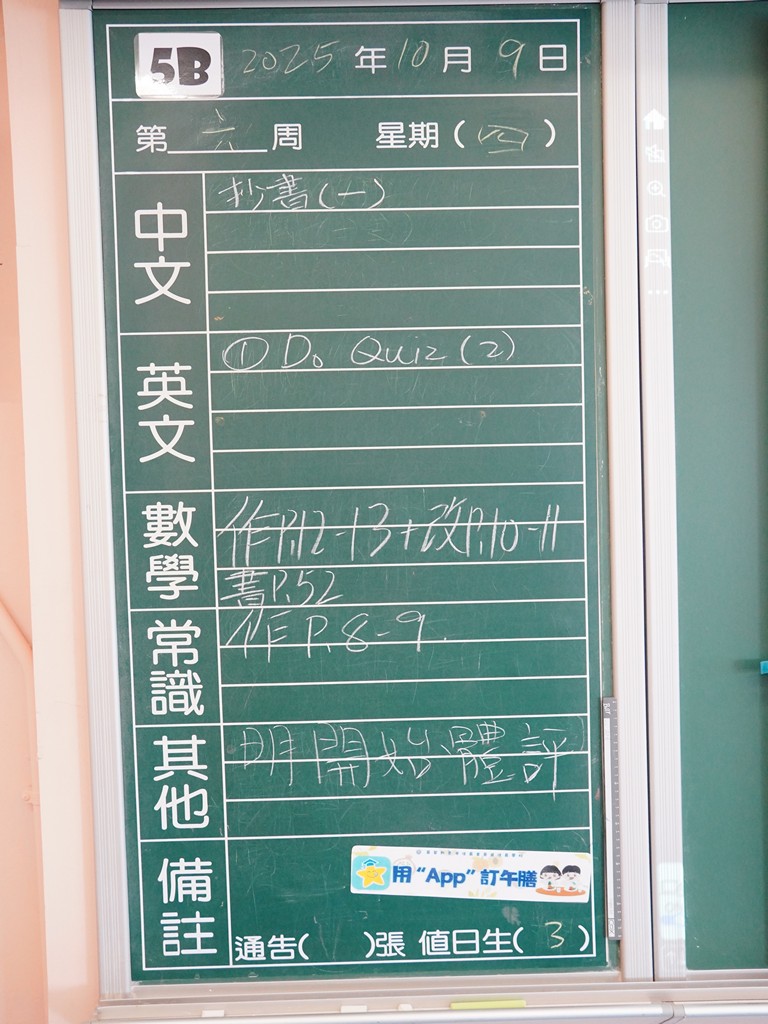 5B 2025年10月9日
第六周 星期(四)
中文 抄書(一)
英文 ① Do Quiz (2)
數學 作P.12-13+改P.10-11
書P.52
常識 作P.8-9
其他 明開始體評
備註
用“App”訂午膳
通告( )張 值日生(3)